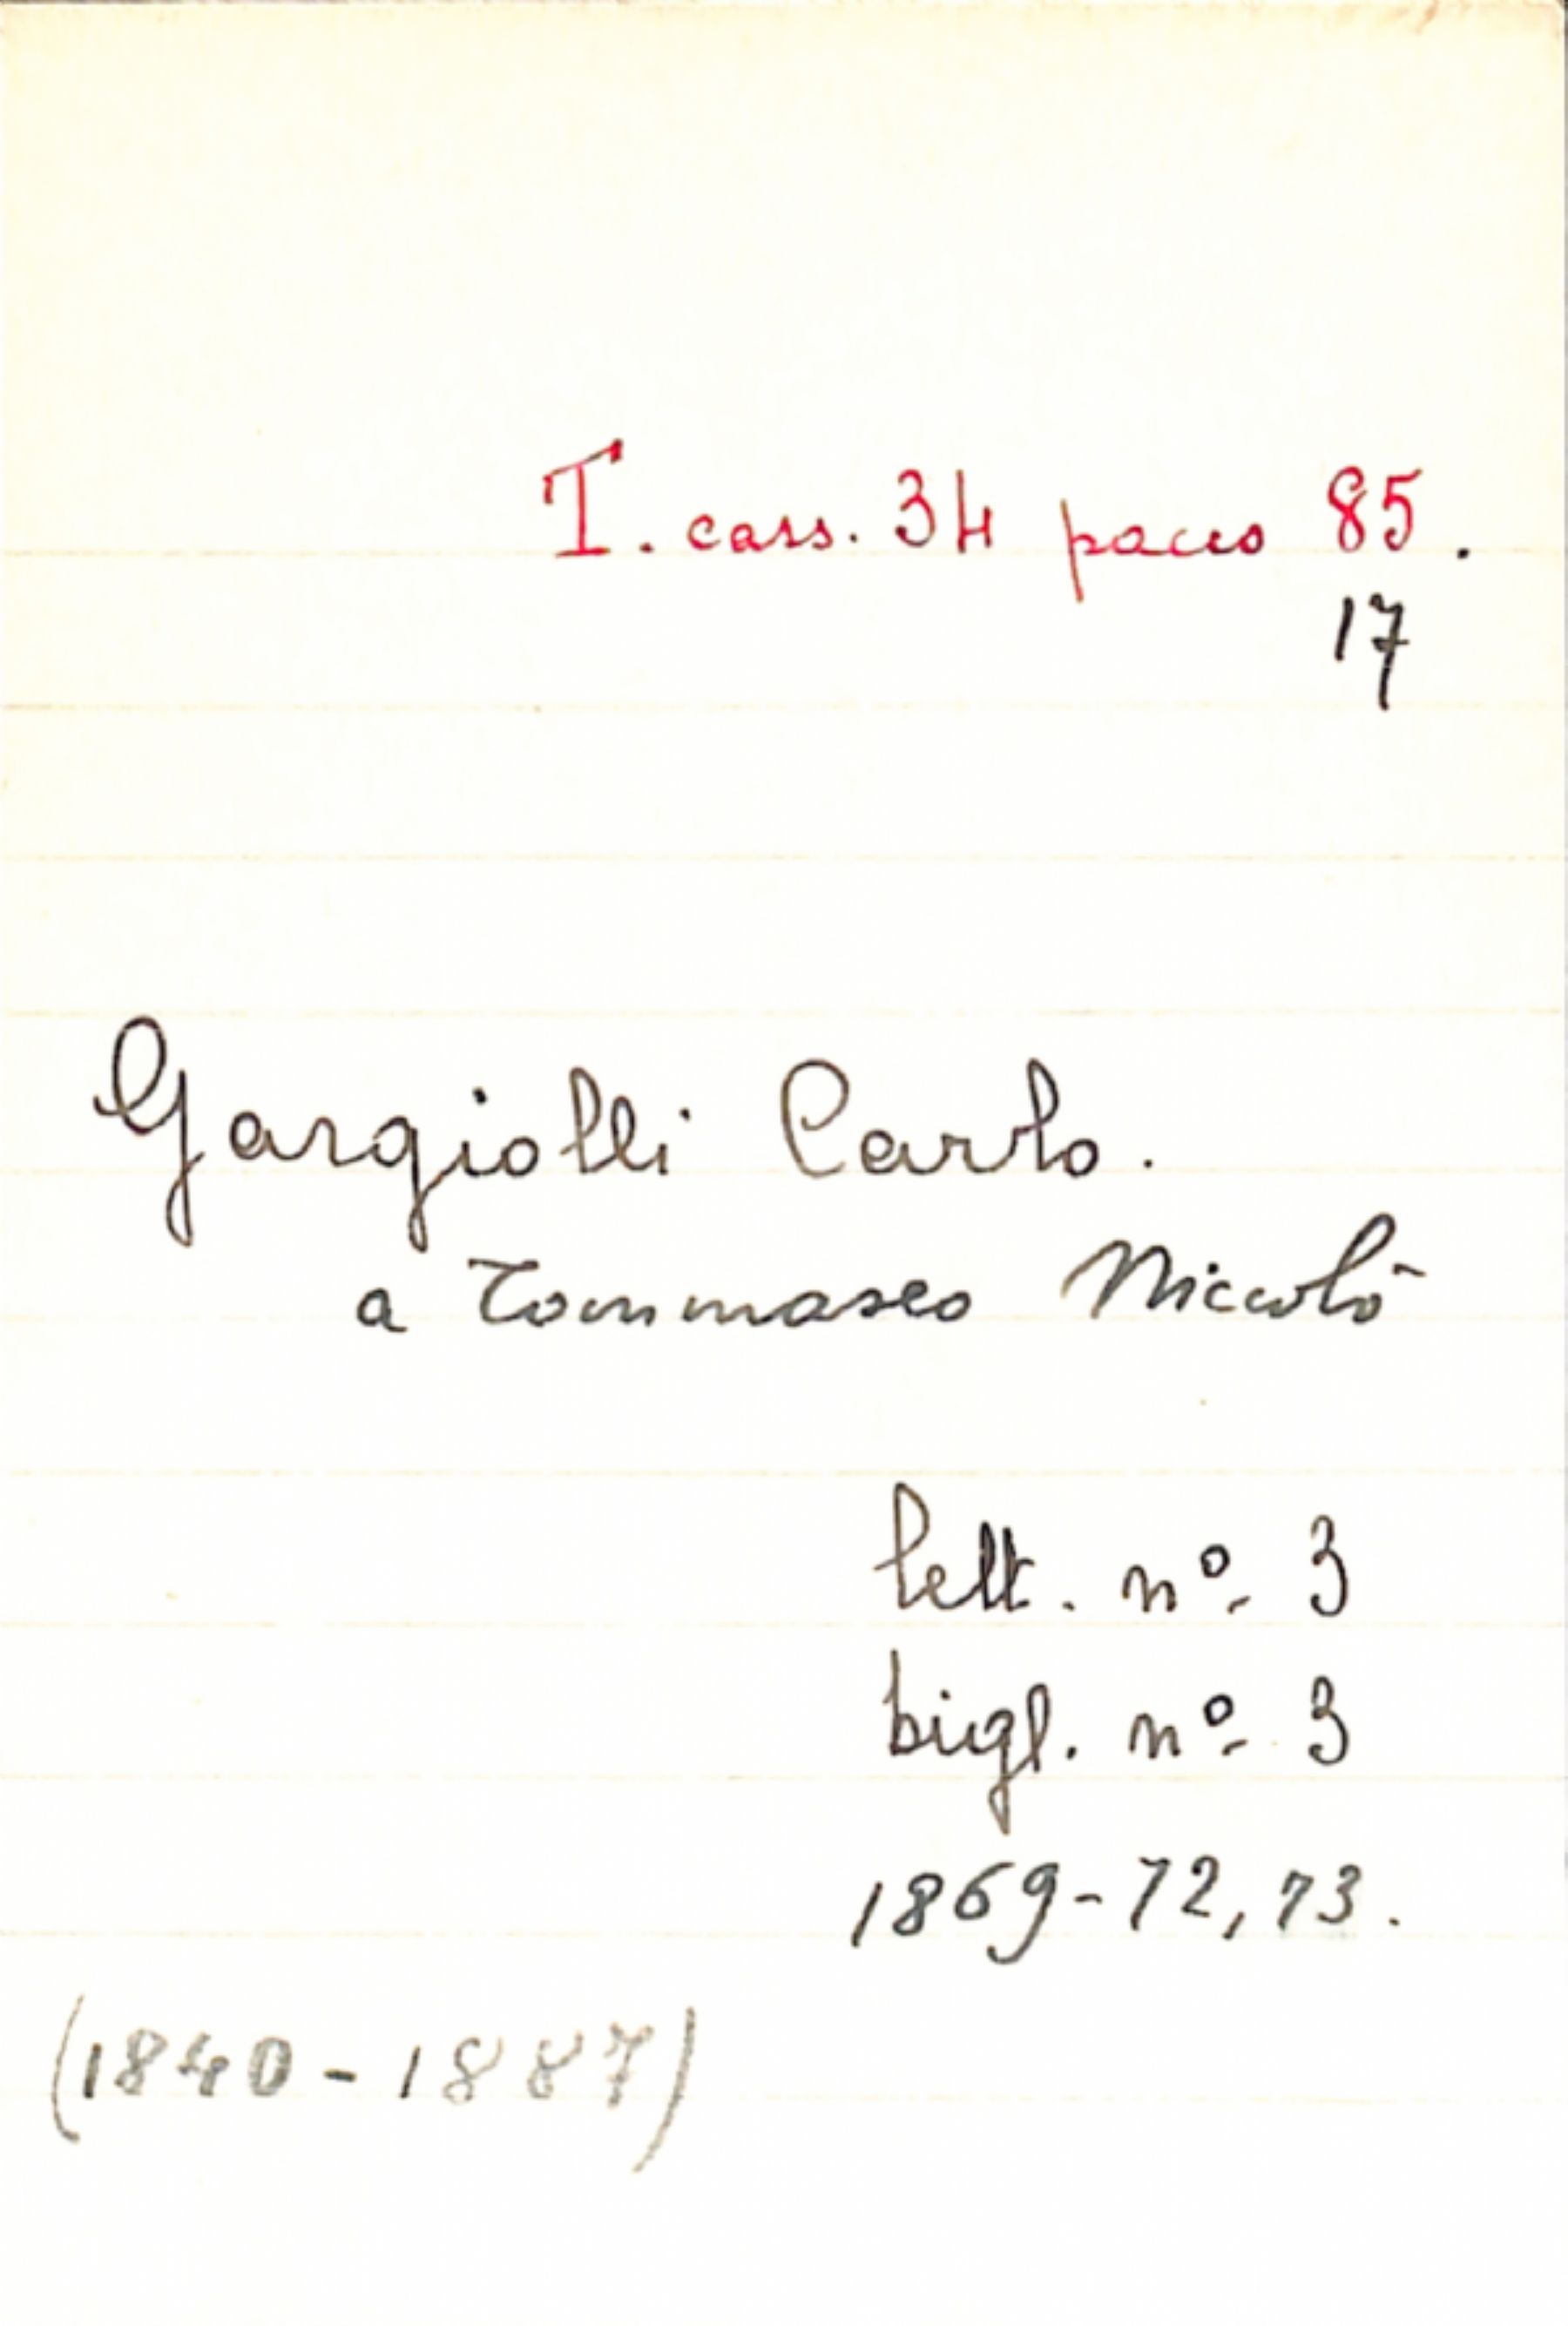 T. cass. 34 pacco 85.
17
Gargiolli Carlo.
a Tommaseo Niccolò
lett. nº 3
bigl. nº 3
1869-72, 73.
(1840-1887)